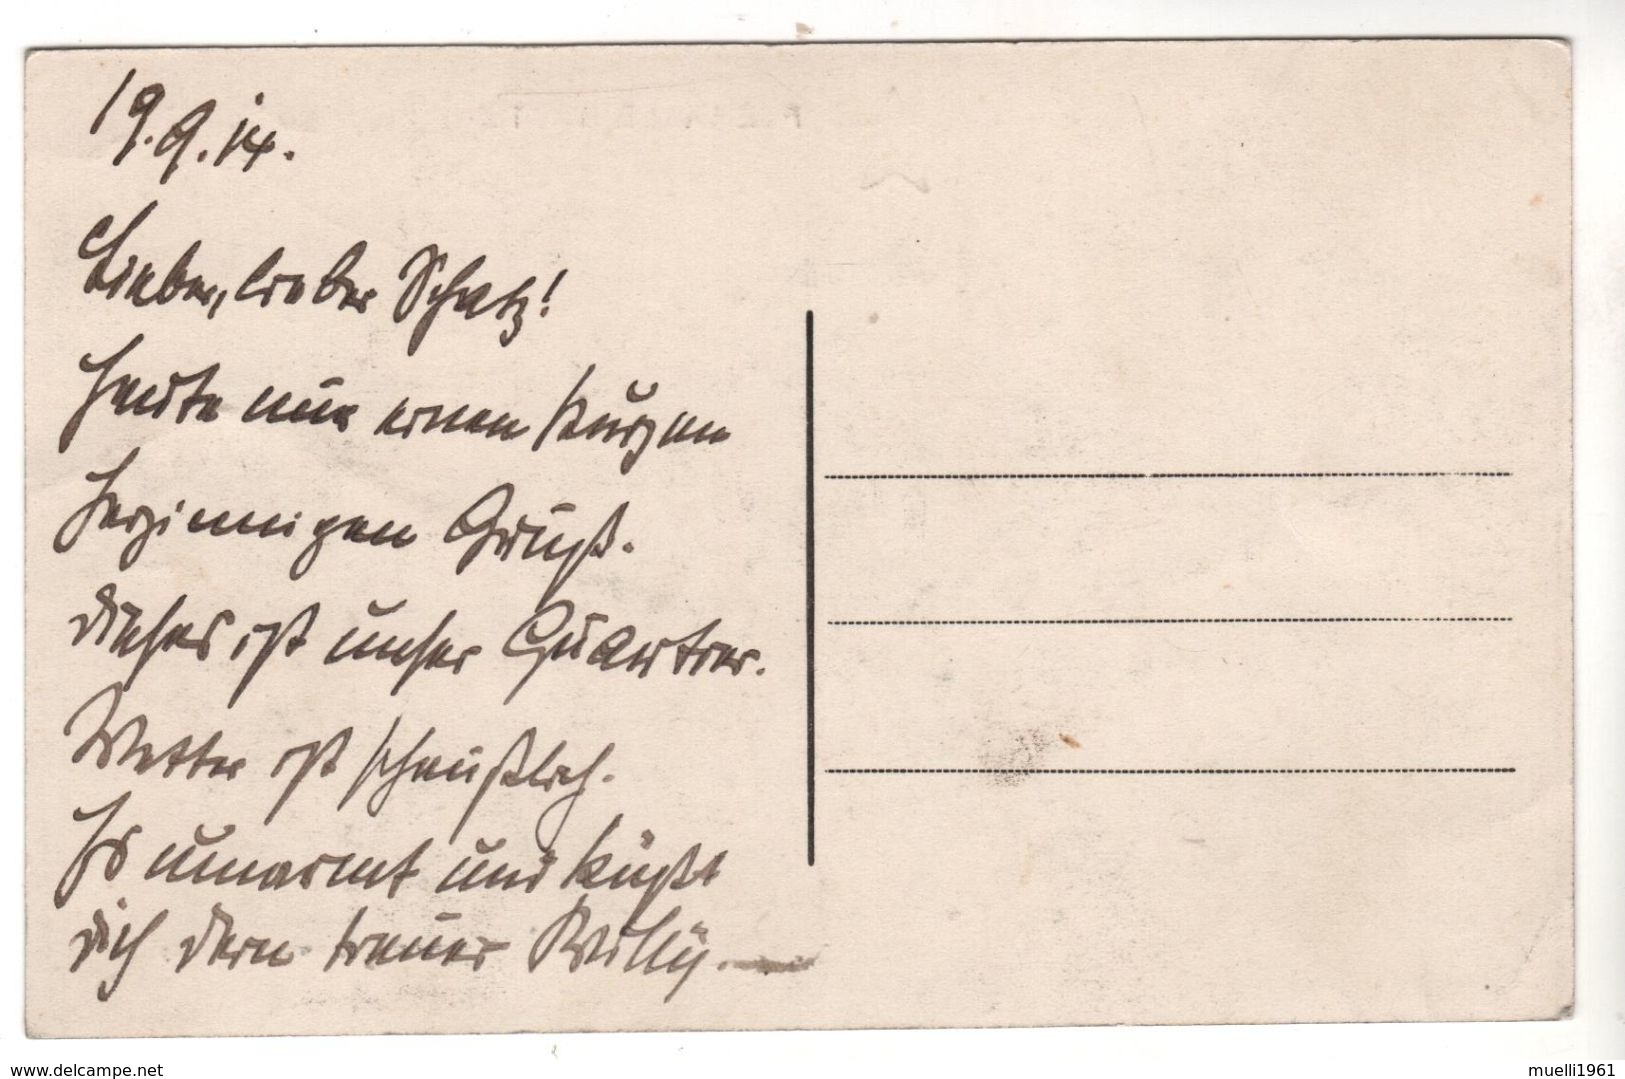 19.9.14.
Lieber, lieber Schatz!
Heute nur einen kurzen
herzinnigen Gruß.
Dieses ist unser Quartier.
Wetter ist scheußlich.
Es umarmt und küßt
Dich Dein treuer Willy.
www.delcampe.net
muelli1961